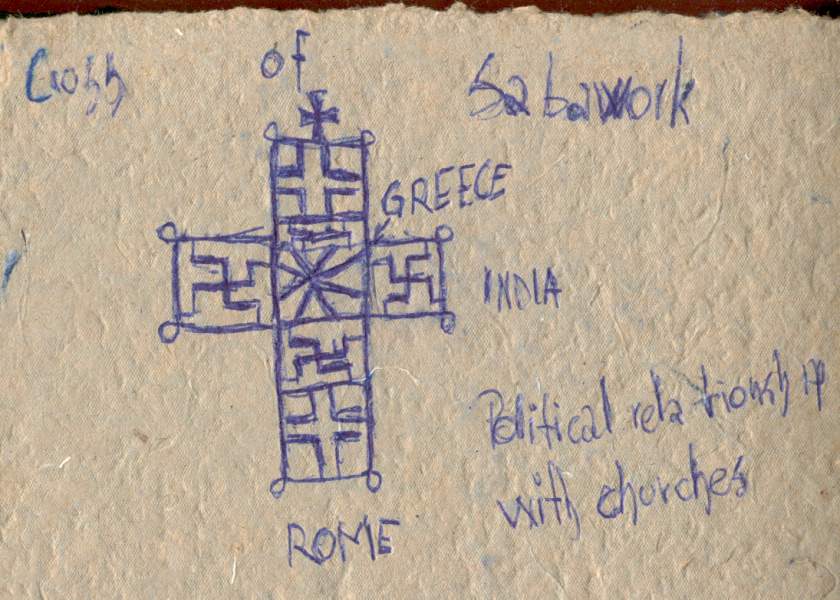 Cross of Sabawork
GREECE
INDIA
Political relationship
with churches
ROME